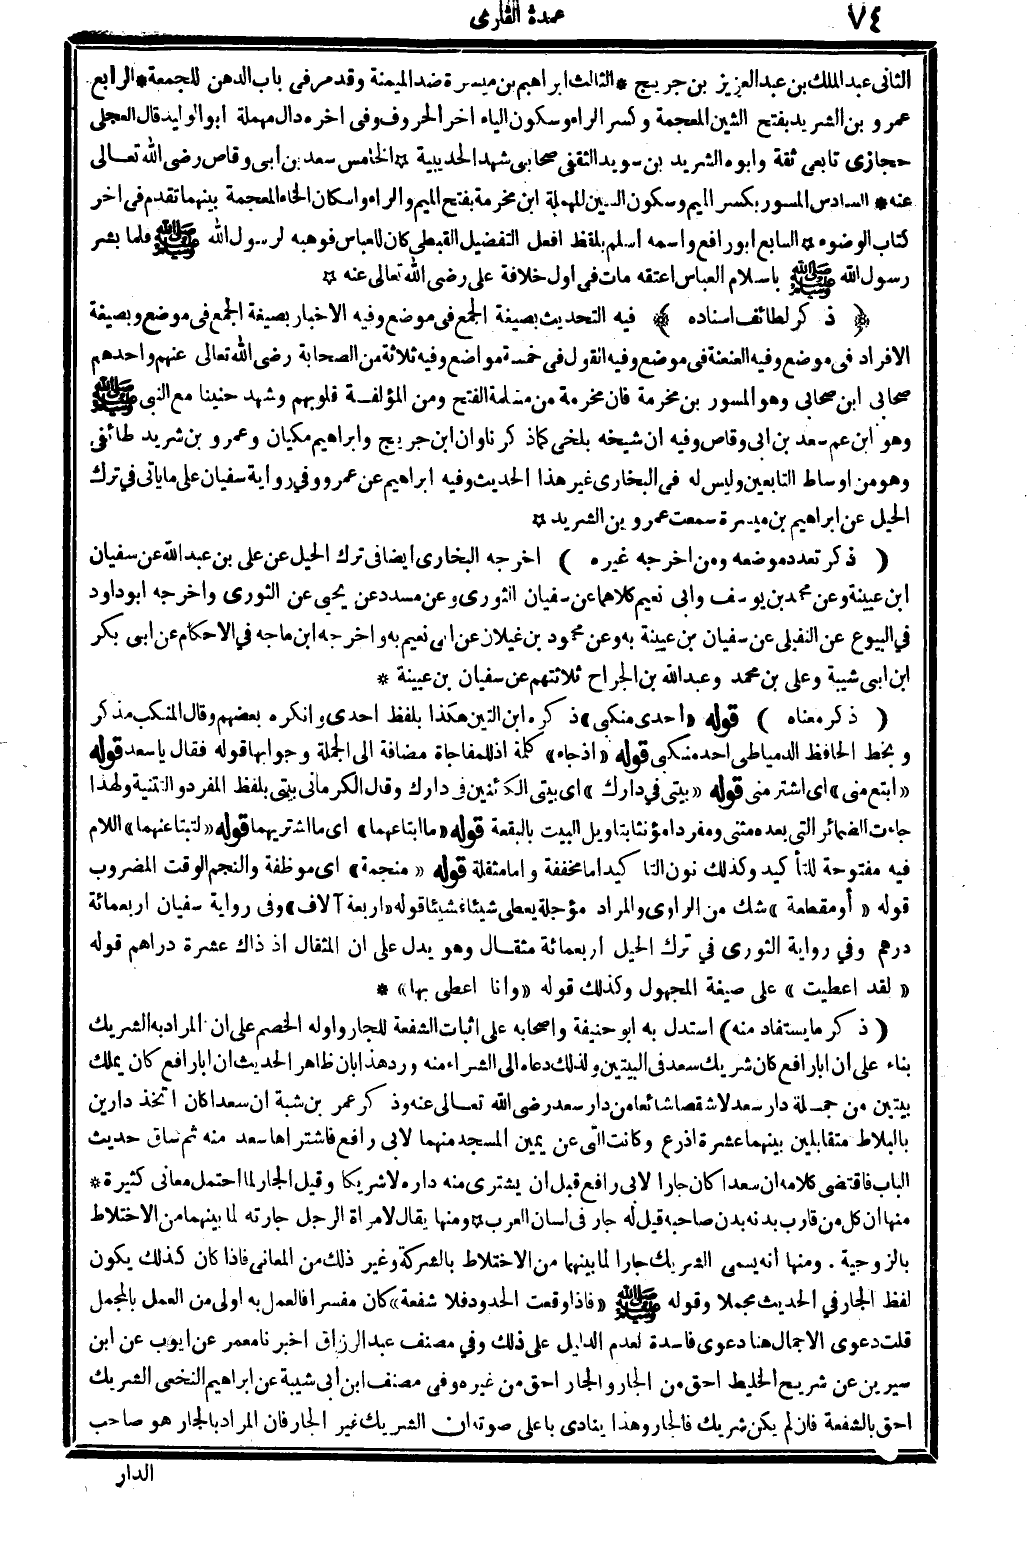 ٧٤
عمدة القارى
الثانى عبد الملك بن عبد العزيز بن جريج * الثالث ابراهيم بن ميسرة ضد الميمنة وقد مر فى باب الدهن للجمعة * الرابع
عمرو بن الشريد بفتح الشين المعجمة وكسر الراء وسكون الياء اخر الحروف وفى اخره دال مهملة ابو الوليد قال العجلى
حجازى تابعى ثقة وابوه الشريد بن سويد الثقفى صحابى شهد الحديبية * الخامس سعد بن ابى وقاص رضى الله تعالى
عنه * السادس المسور بكسر الميم وسكون السين المهملة ابن مخرمة بفتح الميم والراء واسكان الخاء المعجمة بينهما تقدم فى اخر
كتاب الوضوء * السابع ابو رافع واسمه اسلم بلفظ افعل التفضيل القبطى كان للعباس فوهبه لرسول الله ﷺ فلما بشر
رسول الله ﷺ باسلام العباس اعتقه مات فى اول خلافة على رضى الله تعالى عنه *
﴿ ذكر لطائف اسناده ﴾ فيه التحديث بصيغة الجمع فى موضع وفيه الاخبار بصيغة الجمع فى موضع وبصيغة
الافراد فى موضع وفيه العنعنة فى موضع وفيه القول فى خمسة مواضع وفيه ثلاثة من الصحابة رضى الله تعالى عنهم واحدهم
صحابى ابن صحابى وهو المسور بن مخرمة فان مخرمة من مسلمة الفتح ومن المؤلفة قلوبهم وشهد حنينا مع النبى ﷺ
وهو ابن عم سعد بن ابى وقاص وفيه ان شيخه بلخى كما ذكرنا وان ابن جريج وابراهيم مكيان وعمرو بن شريد طائفى
وهو من اوساط التابعين وليس له فى البخارى غير هذا الحديث وفيه ابراهيم عن عمرو وفى رواية سفيان على ما ياتى فى ترك
الحيل عن ابراهيم بن ميسرة سمعت عمرو بن الشريد *
( ذكر تعدد موضعه ومن اخرجه غيره ) اخرجه البخارى ايضا فى ترك الحيل عن على بن عبد الله عن سفيان
ابن عيينة وعن محمد بن يوسف وابى نعيم كلاهما عن سفيان الثورى وعن مسدد عن يحيى عن الثورى واخرجه ابو داود
فى البيوع عن النفيلى عن سفيان بن عيينة به وعن محمود بن غيلان عن ابى نعيم به واخرجه ابن ماجه فى الاحكام عن ابى بكر
ابن ابى شيبة وعلى بن محمد وعبد الله بن الجراح ثلاثتهم عن سفيان بن عيينة *
( ذكر معناه ) قوله «احدى منكبى» ذكره ابن التين هكذا بلفظ احدى وانكره بعضهم وقال المنكب مذكر
وبخط الحافظ الدمياطى احد منكبى قوله «اذ جاء» كلمة اذ للمفاجاة مضافة الى الجملة وجوابها قوله فقال يا سعد قوله
«ابتع منى» اى اشتر منى قوله «بيتى فى دارك» اى بيتى الكائنين فى دارك وقال الكرمانى بيتى بلفظ المفرد والتثنية ولهذا
جاءت الضمائر التى بعده مثنى ومفردا مؤنثا بتاويل البيت بالبقعة قوله «ما ابتاعهما» اى ما اشتريهما قوله «لتبتاعنهما» اللام
فيه مفتوحة للتأكيد وكذلك نون التاكيد اما مخففة واما مثقلة قوله «منجمة» اى موظفة والنجم الوقت المضروب
قوله «أو مقطعة» شك من الراوى والمراد مؤجلة يعطى شيئا فشيئا قوله «اربعة آلاف» وفى رواية سفيان اربعمائة
درهم وفى رواية الثورى فى ترك الحيل اربعمائة مثقال وهو يدل على ان المثقال اذ ذاك عشرة دراهم قوله
«لقد اعطيت» على صيغة المجهول وكذلك قوله «وانا اعطى بها» *
(ذكر ما يستفاد منه) استدل به ابو حنيفة واصحابه على اثبات الشفعة للجار واوله الخصم على ان المراد به الشريك
بناء على ان ابا رافع كان شريك سعد فى البيتين ولذلك دعاه الى الشراء منه ورد هذا بان ظاهر الحديث ان ابا رافع كان يملك
بيتين من جملة دار سعد لا شقصا شائعا من دار سعد رضى الله تعالى عنه وذكر عمر بن شبة ان سعدا كان اتخذ دارين
بالبلاط متقابلين بينهما عشرة اذرع وكانت التى عن يمين المسجد منهما لابى رافع فاشتراها سعد منه ثم ساق حديث
الباب فاقتضى كلامه ان سعدا كان جارا لابى رافع قبل ان يشترى منه داره لا شريكا وقيل الجار لما احتمل معانى كثيرة *
منها ان كل من قارب بدنه بدن صاحبه قيل له جار فى لسان العرب * ومنها يقال لامراة الرجل جارته لما بينهما من الاختلاط
بالزوجية . ومنها أنه يسمى الشريك جارا لما بينهما من الاختلاط بالشركة وغير ذلك من المعانى فاذا كان كذلك يكون
لفظ الجار فى الحديث مجملا وقوله ﷺ «فاذا وقعت الحدود فلا شفعة» كان مفسرا فالعمل به اولى من العمل بالمجمل
قلت دعوى الاجمال هنا دعوى فاسدة لعدم الدليل على ذلك وفى مصنف عبد الرزاق اخبرنا معمر عن ايوب عن ابن
سيرين عن شريح الخليط احق من الجار والجار احق من غيره وفى مصنف ابن أبى شيبة عن ابراهيم النخعى الشريك
احق بالشفعة فان لم يكن شريك فالجار وهذا ينادى باعلى صوته ان الشريك غير الجار فان المراد بالجار هو صاحب
الدار